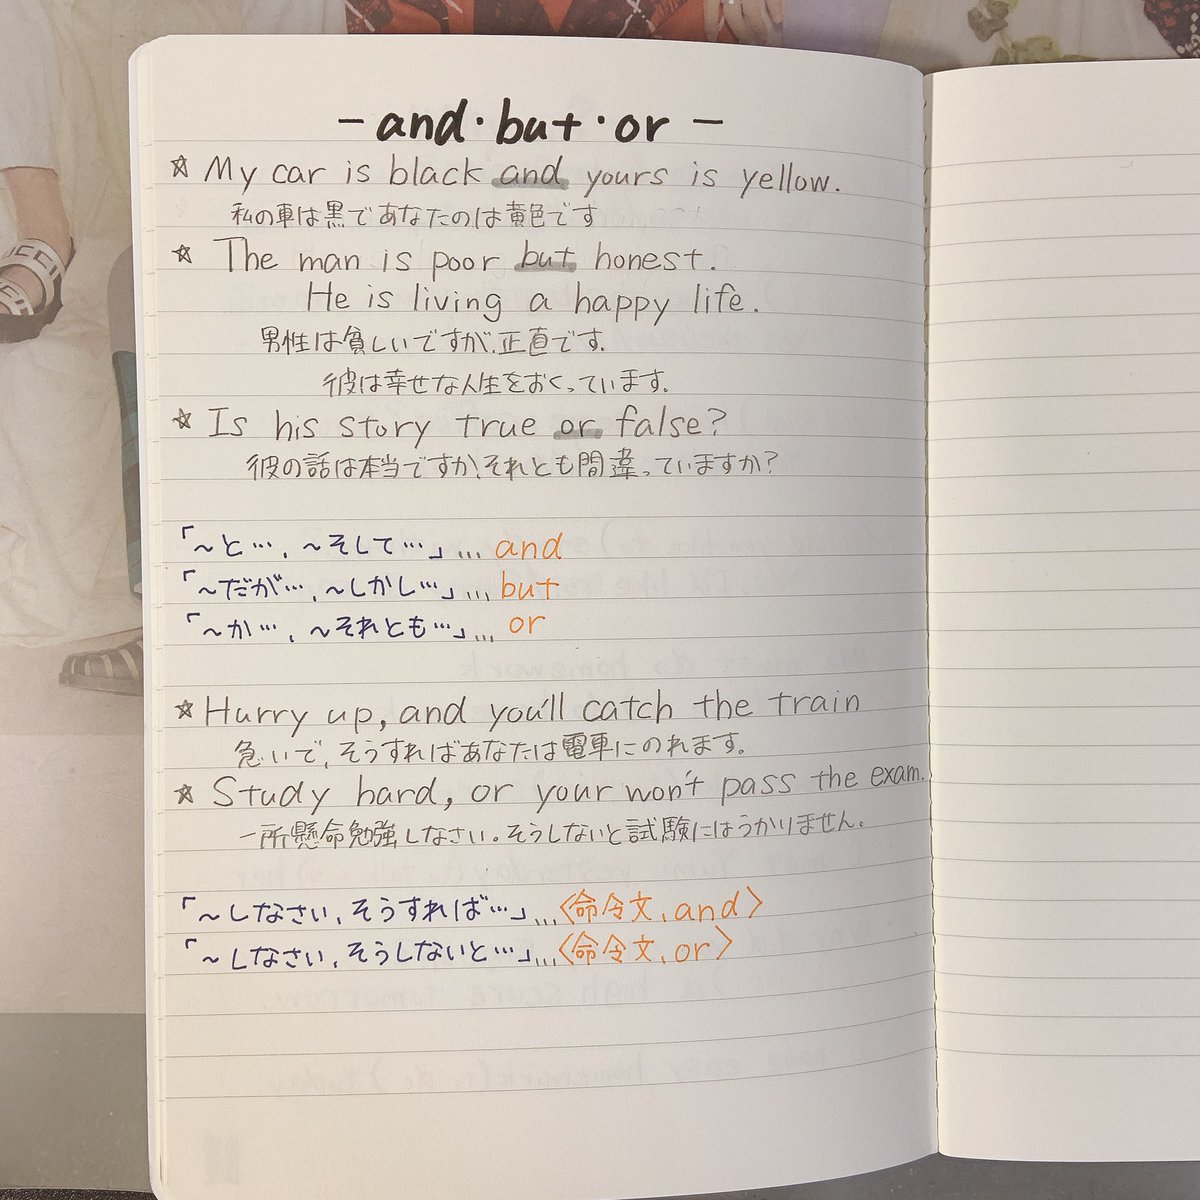 - and・but・or -
☆ My car is black and yours is yellow.
私の車は黒であなたのは黄色です
☆ The man is poor but honest.
He is living a happy life.
男性は貧しいですが、正直です.
彼は幸せな人生をおくっています.
☆ Is his story true or false?
彼の話は本当ですか、それとも間違っていますか?
「~と…, ~そして…」... and
「~だが…, ~しかし…」... but
「~か…, ~それとも…」... or
☆ Hurry up, and you'll catch the train
急いで、そうすればあなたは電車にのれます。
☆ Study hard, or your won't pass the exam.
一所懸命勉強しなさい。そうしないと試験にはうかりません.
「~しなさい, そうすれば…」...〈命令文, and〉
「~しなさい, そうしないと…」...〈命令文, or〉